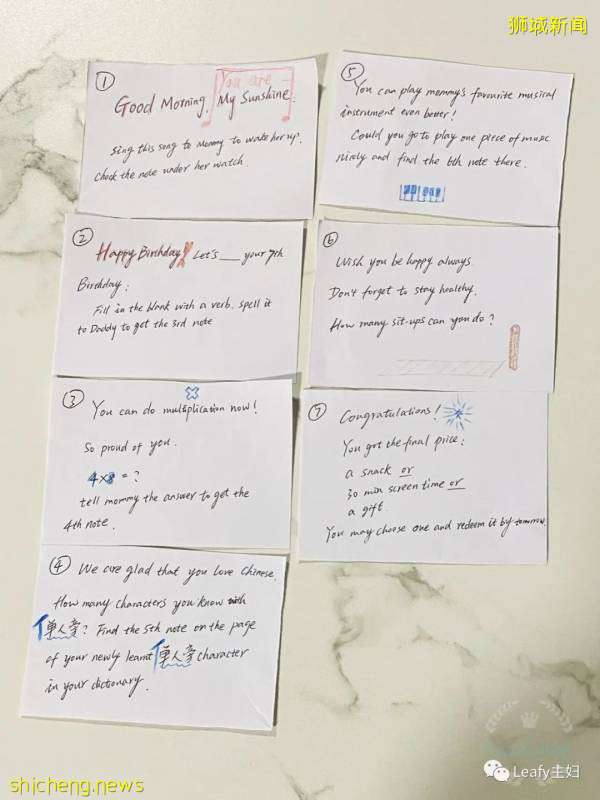 狮城新闻
①
You are
Good Morning, My Sunshine.
Sing this song to Mommy to wake her up.
Check the note under her watch.
②
Happy Birthday! Let's ___ your 7th
Birthday:
Fill in the blank with a verb. Spell it
to Daddy to get the 3rd note
③
You can do multiplication now!
So proud of you.
4×8 = ?
tell mommy the answer to get the
4th note.
④ We are glad that you love Chinese.
How many characters you know with
亻單人旁? Find the 5th note on the page
of your newly learnt 亻單人旁 character
in your dictionary.
⑤
You can play mommy's favourite musical
instrument even better!
Could you go to play one piece of music
nicely and find the 6th note there.
⑥
Wish you be happy always.
Don't forget to stay healthy.
How many sit-ups can you do?
⑦
Congratulations!
You got the final price:
a snack or
30 min screen time or
a gift.
You may choose one and redeem it by tomorrow.
Leafy主妇
shicheng.news